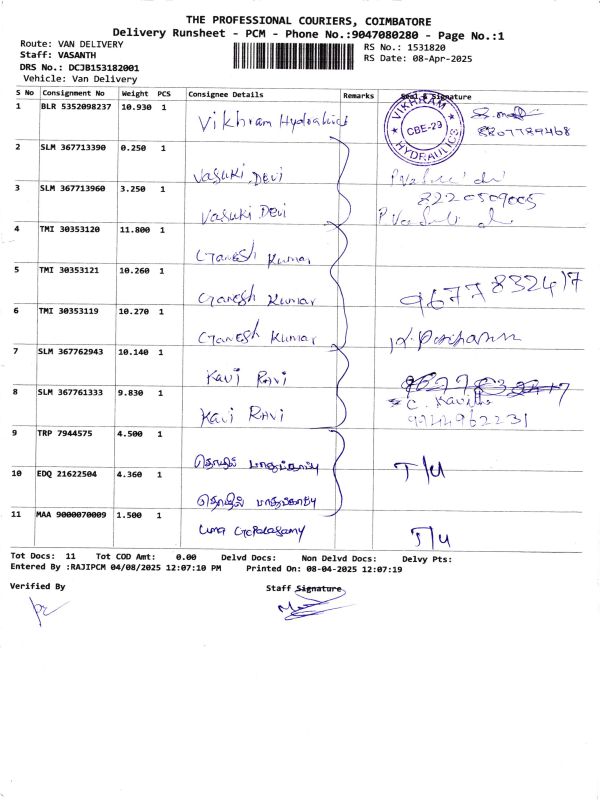 THE PROFESSIONAL COURIERS, COIMBATORE
Delivery Runsheet - PCM - Phone No.:9047080280 - Page No.:1
Route: VAN DELIVERY
RS No.: 1531820
Staff: VASANTH
RS Date: 08-Apr-2025
DRS No.: DCJB153182001
Vehicle: Van Delivery
S No Consignment No Weight PCS Consignee Details Remarks Seal & Signature
1 BLR 5352098237 10.930 1 Vikhram Hydraulics
VIKHRAM CBE-29 HYDRAULICS
8807789468
2 SLM 367713390 0.250 1 Vasuki Devi
3 SLM 367713960 3.250 1 Vasuki Devi
8220509005
4 TMI 30353120 11.800 1 Ganesh Kumar
5 TMI 30353121 10.260 1 Ganesh Kumar 9677832417
6 TMI 30353119 10.270 1 Ganesh Kumar
7 SLM 367762943 10.140 1 Kavi Ravi
8 SLM 367761333 9.830 1 Kavi Ravi C. Kavitha
9944962231
9 TRP 7944575 4.500 1 T/U
10 EDQ 21622504 4.360 1
11 MAA 9000070009 1.500 1 Uma Gopalasamy T/U
Tot Docs: 11 Tot COD Amt: 0.00 Delvd Docs: Non Delvd Docs: Delvy Pts:
Entered By :RAJIPCM 04/08/2025 12:07:10 PM Printed On: 08-04-2025 12:07:19
Verified By Staff Signature